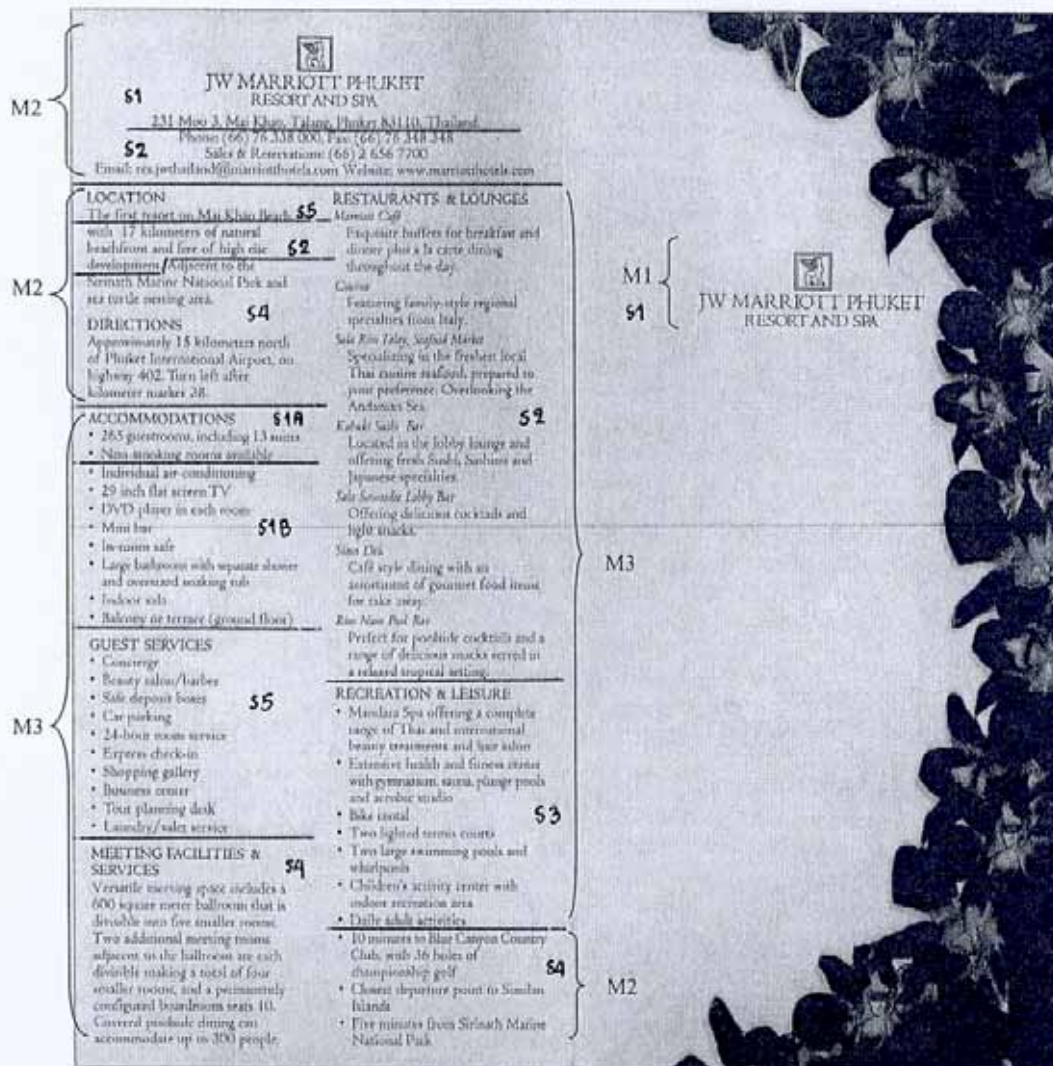 M2
S1
JW MARRIOTT PHUKET
RESORT AND SPA
231 Moo 3, Mai Khao, Talang, Phuket 83110, Thailand
Phone: (66) 76 338 000, Fax: (66) 76 348 348
S2
Sales & Reservations: (66) 2 656 7700
Email: res.jwthailand@marriotthotels.com Website: www.marriotthotels.com
M2
LOCATION
The first resort on Mai Khao Beach S5
with 17 kilometers of natural
beachfront and free of high rise S2
development/Adjacent to the
Sirinath Marine National Park and
sea turtle nesting area.
S4
DIRECTIONS
Approximately 15 kilometers north
of Phuket International Airport, on
highway 402. Turn left after
kilometer marker 28.
M3
ACCOMMODATIONS S1A
• 265 guestrooms, including 13 suites
• Non-smoking rooms available
• Individual air-conditioning
• 29 inch flat screen TV
• DVD player in each room
• Mini bar S1B
• In-room safe
• Large bathroom with separate shower
and oversized soaking tub
• Indoor sala
• Balcony or terrace (ground floor)
GUEST SERVICES
• Concierge
• Beauty salon/barber
• Safe deposit boxes S5
• Car parking
• 24-hour room service
• Express check-in
• Shopping gallery
• Business center
• Tour planning desk
• Laundry/valet service
MEETING FACILITIES &
SERVICES S4
Versatile meeting space includes a
600 square meter ballroom that is
divisible into five smaller rooms.
Two additional meeting rooms
adjacent to the ballroom are each
divisible making a total of four
smaller rooms, and a permanently
configured boardroom seats 10.
Covered poolside dining can
accommodate up to 300 people.
RESTAURANTS & LOUNGES
Marriott Café
Exquisite buffets for breakfast and
dinner plus a la carte dining
throughout the day.
Featuring family-style regional
specialties from Italy.
Sala Rim Talay, Seafood Market
Specializing in the freshest local
Thai cuisine seafood, prepared to
your preference. Overlooking the
Andaman Sea.
S2
Kabuki Sushi Bar
Located in the lobby lounge and
offering fresh Sushi, Sashimi and
Japanese specialties.
Sala Sawasdee Lobby Bar
Offering delicious cocktails and
light snacks.
Siam Deli
Café style dining with an
assortment of gourmet food items
for take away.
Rim Nam Pool Bar
Perfect for poolside cocktails and a
range of delicious snacks served in
a relaxed tropical setting.
RECREATION & LEISURE
• Mandara Spa offering a complete
range of Thai and international
beauty treatments and hair salon
• Extensive health and fitness center
with gymnasium, sauna, plunge pools
and aerobic studio
• Bike rental S3
• Two lighted tennis courts
• Two large swimming pools and
whirlpools
• Children's activity center with
indoor recreation area
• Daily adult activities
M3
• 10 minutes to Blue Canyon Country
Club, with 36 holes of
championship golf S4
• Closest departure point to Similan
Islands
• Five minutes from Sirinath Marine
National Park
M2
M1
S1
JW MARRIOTT PHUKET
RESORT AND SPA